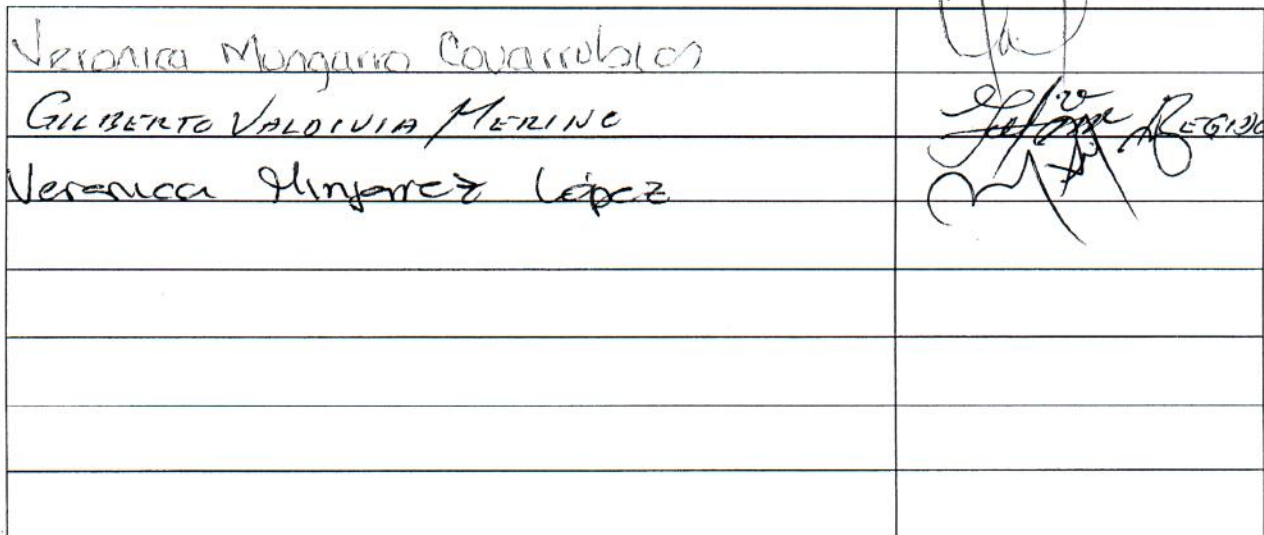 Veronica Mungarro Covarrubias
GILBERTO VALDIVIA MERINO REGIDOR
Veronica Minjarrez López